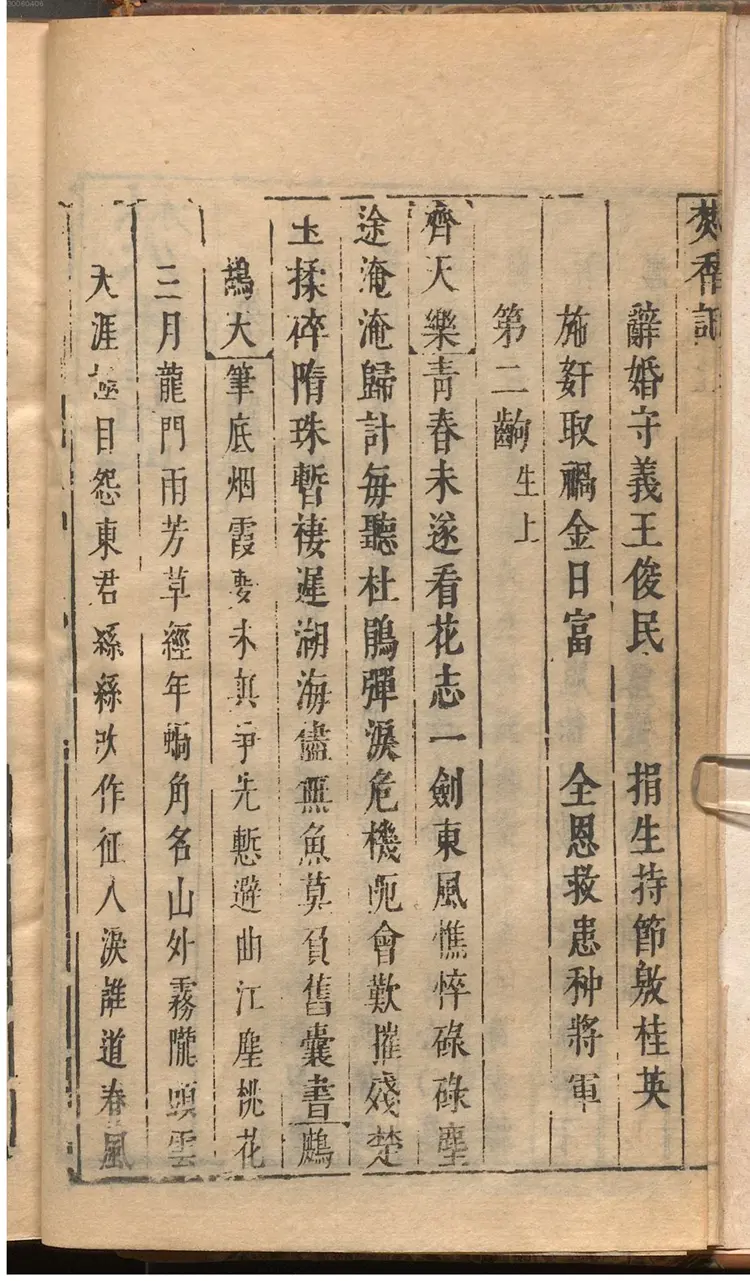 20080406
焚香記
辭婚守義王俊民　捐生持節敫桂英
施奸取禍金日富　全恩救患种將軍
第二齣 生上
齊天樂 青春未遂看花志一劍東風憔悴碌碌塵
途淹淹歸計每聽杜鵑彈淚危機阨會歎摧殘楚
玉揉碎隋珠暫棲遲湖海儘無魚莫負舊囊書 鷓
鴣天 筆底烟霞夢未真爭先慙避曲江塵桃花
三月龍門雨芳草經年蝸角名山外霧隴頭雲
天涯極目怨東君絲絲改作征人淚誰道春風